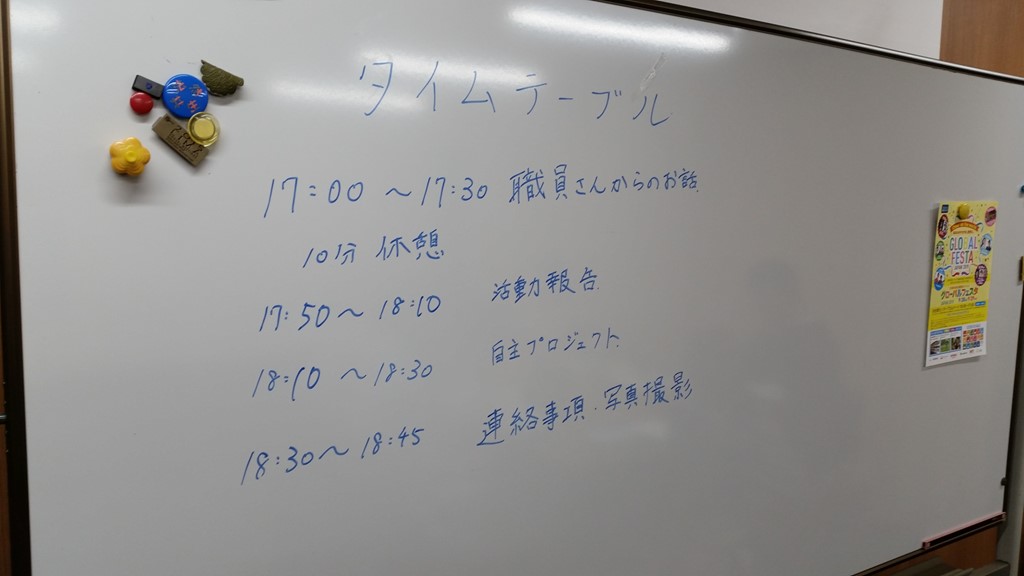 タイムテーブル
17:00 ~ 17:30 職員さんからのお話
10分 休憩
17:50 ~ 18:10 活動報告
18:10 ~ 18:30 自主プロジェクト
18:30 ~ 18:45 連絡事項・写真撮影
GLOBAL
FESTA
グローバルフェスタ